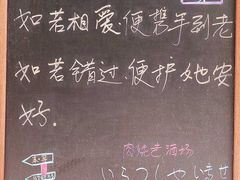 如若相爱,便携手到老
如若错过,便护她安
好.
肉烧老酒场
いらっしゃいませ